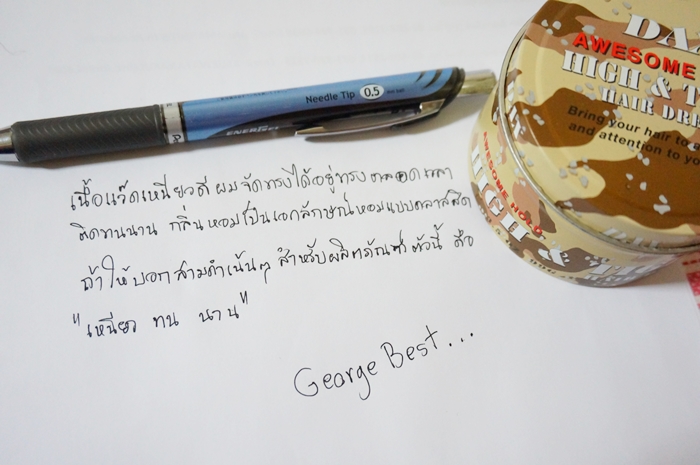 DA
AWESOME
HIGH & T
HAIR DRE
Bring your hair to a
and attention to yo
AWESOME HOLD
HIGH
Needle Tip 0.5
ENERGEL
เนื้อแว๊ดเหนียวดี ผมจัดทรงได้อยู่ทรงตลอดเวลา
ติดทนนาน กลิ่นหอมเป็นเอกลักษณ์หอมแบบคลาสสิค
ถ้าให้บอกสามคำเน้นๆ สำหรับผลิตภัณฑ์ตัวนี้ คือ
"เหนียว ทน นาน"
George Best...